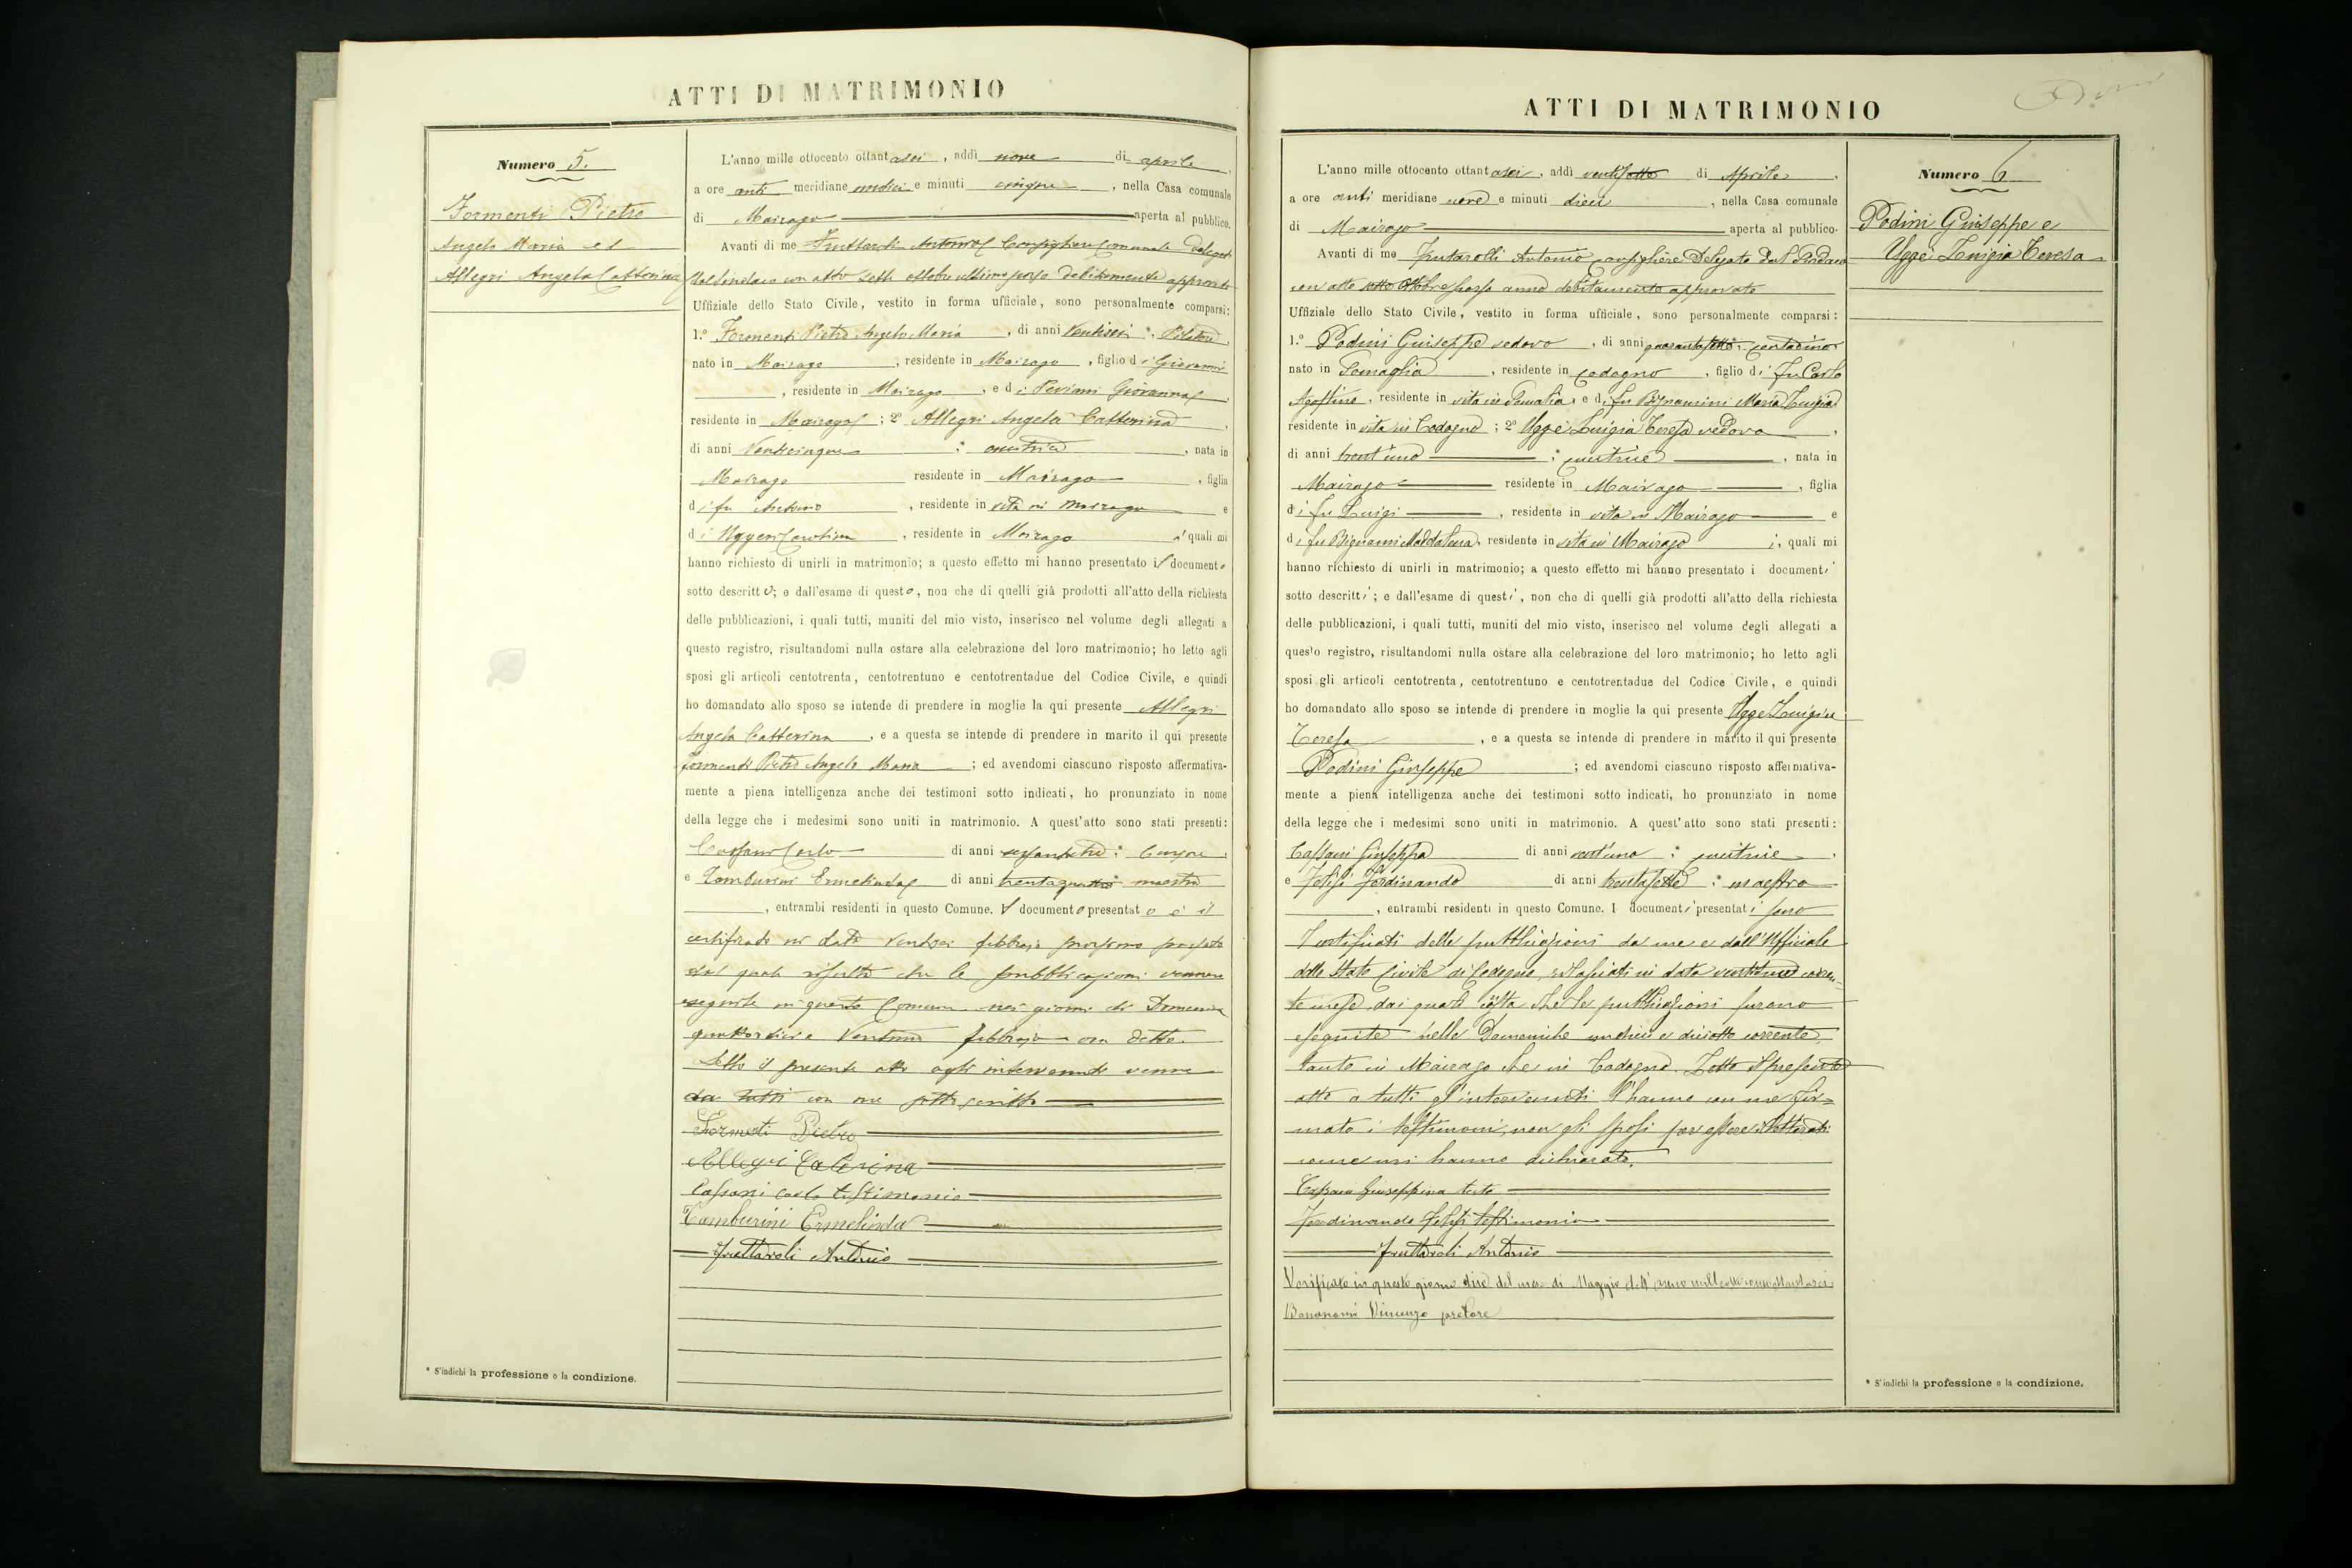 ATTI DI MATRIMONIO
Numero 5.
Formenti Pietro
Angelo Maria ed
Allegri Angela Catterina
L'anno mille ottocento ottantasei, addì nove di aprile,
a ore anti meridiane undici e minuti cinque, nella Casa comunale
di Mairago aperta al pubblico.
Avanti di me Fruttaroli Antonio Consigliere Comunale Delegato
dal Sindaco con atto sette ottobre ultimo passo debitamente approvato
Uffiziale dello Stato Civile, vestito in forma ufficiale, sono personalmente comparsi:
1.° Formenti Pietro Angelo Maria, di anni ventisei *,
nato in Mairago, residente in Mairago, figlio di Giovanni
, residente in Mairago, e di Peviani Giovanna,
residente in Mairago; 2° Allegri Angela Catterina,
di anni Venticinque *, nata in
Mairago residente in Mairago, figlia
di fu Antonio, residente in vita in Mairago e
di Uggeri Carolina, residente in Mairago i quali mi
hanno richiesto di unirli in matrimonio; a questo effetto mi hanno presentato il documento
sotto descritto; e dall'esame di questo, non che di quelli già prodotti all'atto della richiesta
delle pubblicazioni, i quali tutti, muniti del mio visto, inserisco nel volume degli allegati a
questo registro, risultandomi nulla ostare alla celebrazione del loro matrimonio; ho letto agli
sposi gli articoli centotrenta, centotrentuno e centotrentadue del Codice Civile, e quindi
ho domandato allo sposo se intende di prendere in moglie la qui presente Allegri
Angela Catterina, e a questa se intende di prendere in marito il qui presente
Formenti Pietro Angelo Maria; ed avendomi ciascuno risposto affermativa-
mente a piena intelligenza anche dei testimoni sotto indicati, ho pronunziato in nome
della legge che i medesimi sono uniti in matrimonio. A quest'atto sono stati presenti:
Cassani Carlo di anni sessantatre *
e Tamburini Ermelinda di anni trentaquattro maestra
, entrambi residenti in questo Comune. Il documento presentato è il
certificato in data ventisei febbrajo prossimo passato
dal quale risulta che le pubblicazioni vennero
eseguite in questo Comune nei giorni di Domenica
quattordici e Ventuno febbrajo ora detto.
Letto il presente atto agli intervenuti venne
da tutti con me sottoscritto
Formenti Pietro
Allegri Caterina
Cassani Carlo testimonio
Tamburini Ermelinda
Fruttaroli Antonio
* S'indichi la professione o la condizione.
ATTI DI MATRIMONIO
Numero 6
Podini Giuseppe e
Uggè Luigia Teresa
L'anno mille ottocento ottantasei, addì ventisette di Aprile,
a ore anti meridiane nove e minuti dieci, nella Casa comunale
di Mairago aperta al pubblico.
Avanti di me Frutarolli Antonio consigliere Delegato dal Sindaco
con atto sette Ottobre scorso anno debitamente approvato
Uffiziale dello Stato Civile, vestito in forma ufficiale, sono personalmente comparsi:
1.° Podini Giuseppe vedovo, di anni quarantasette *, contadino
nato in Somaglia, residente in Codogno, figlio di fu Carlo
Agostino, residente in vita in Somalia, e di fu Maria Luigia
residente in vita in Codogno; 2° Uggè Luigia Teresa vedova,
di anni trent'uno *, nata in
Mairago residente in Mairago, figlia
di fu Luigi, residente in vita in Mairago e
di fu Bignami Maddalena, residente in vita in Mairago i quali mi
hanno richiesto di unirli in matrimonio; a questo effetto mi hanno presentato i documenti
sotto descritti; e dall'esame di questi, non che di quelli già prodotti all'atto della richiesta
delle pubblicazioni, i quali tutti, muniti del mio visto, inserisco nel volume degli allegati a
questo registro, risultandomi nulla ostare alla celebrazione del loro matrimonio; ho letto agli
sposi gli articoli centotrenta, centotrentuno e centotrentadue del Codice Civile, e quindi
ho domandato allo sposo se intende di prendere in moglie la qui presente Uggè Luigia
Teresa, e a questa se intende di prendere in marito il qui presente
Podini Giuseppe; ed avendomi ciascuno risposto affermativa-
mente a piena intelligenza anche dei testimoni sotto indicati, ho pronunziato in nome
della legge che i medesimi sono uniti in matrimonio. A quest'atto sono stati presenti:
Cassani Giuseppa di anni vent'uno *
e Felisi Ferdinando di anni trentasette * maestro
, entrambi residenti in questo Comune. I documenti presentati sono
I certificati delle pubblicazioni da me e dall'Uffiziale
dello Stato Civile di Codogno, rilasciati in data corren-
te mese, dai quali consta che le pubblicazioni furono
eseguite nelle Domeniche undici e diciotto corrente,
tanto in Mairago che in Codogno. Letto il presente
atto a tutti gl'intervenuti l'hanno con me fir=
mato i testimoni, non gli sposi per essere illetterati
come mi hanno dichiarato.
Cassani Giuseppina teste
Ferdinando Felisi testimonio
Fruttaroli Antonio
Verificato in questo giorno dieci del mese di Maggio dell'anno milleottocentottantasei
Bonanomi Vincenzo pretore
* S'indichi la professione o la condizione.